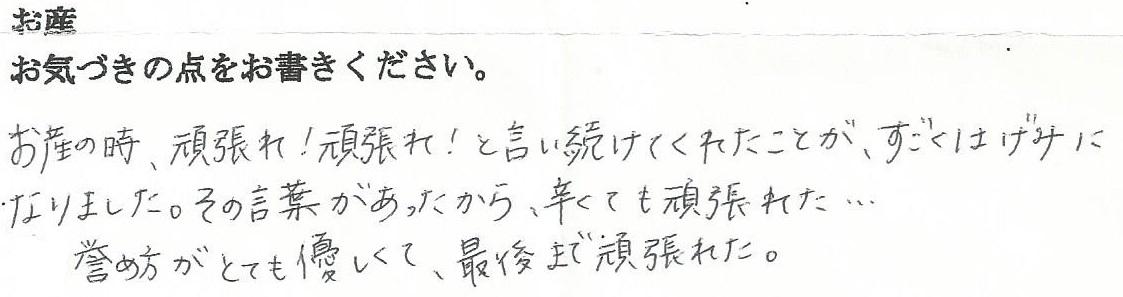 お産
お気づきの点をお書きください。
お産の時、頑張れ!頑張れ!と言い続けてくれたことが、すごくはげみに
なりました。その言葉があったから、辛くても頑張れた…
誉め方がとても優しくて、最後まで頑張れた。